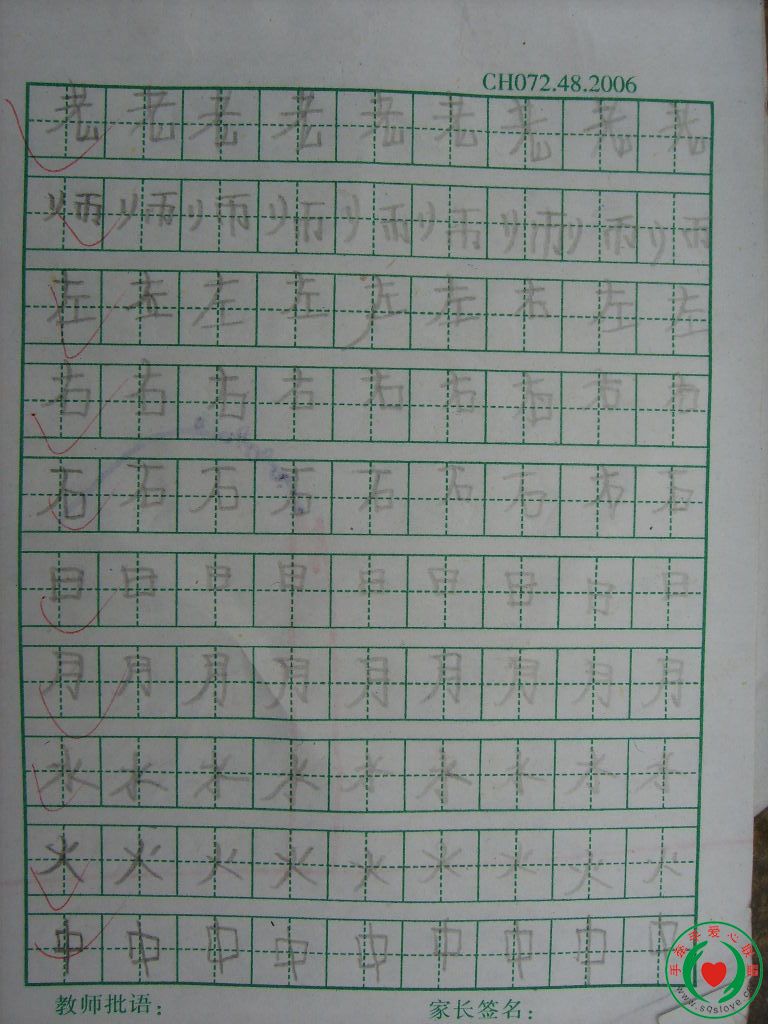 CH072.48.2006
老老老老老老老老老
师师师师师师师师师
左左左左左左左左左
右右右右右右右右右
石石石石石石石石石
日日日日日日日日日
月月月月月月月月月
水水水水水水水水水
火火火火火火火火火
中中中中中中中中中
教师批语： 家长签名：
手余余爱心联盟
www.sqslove.co